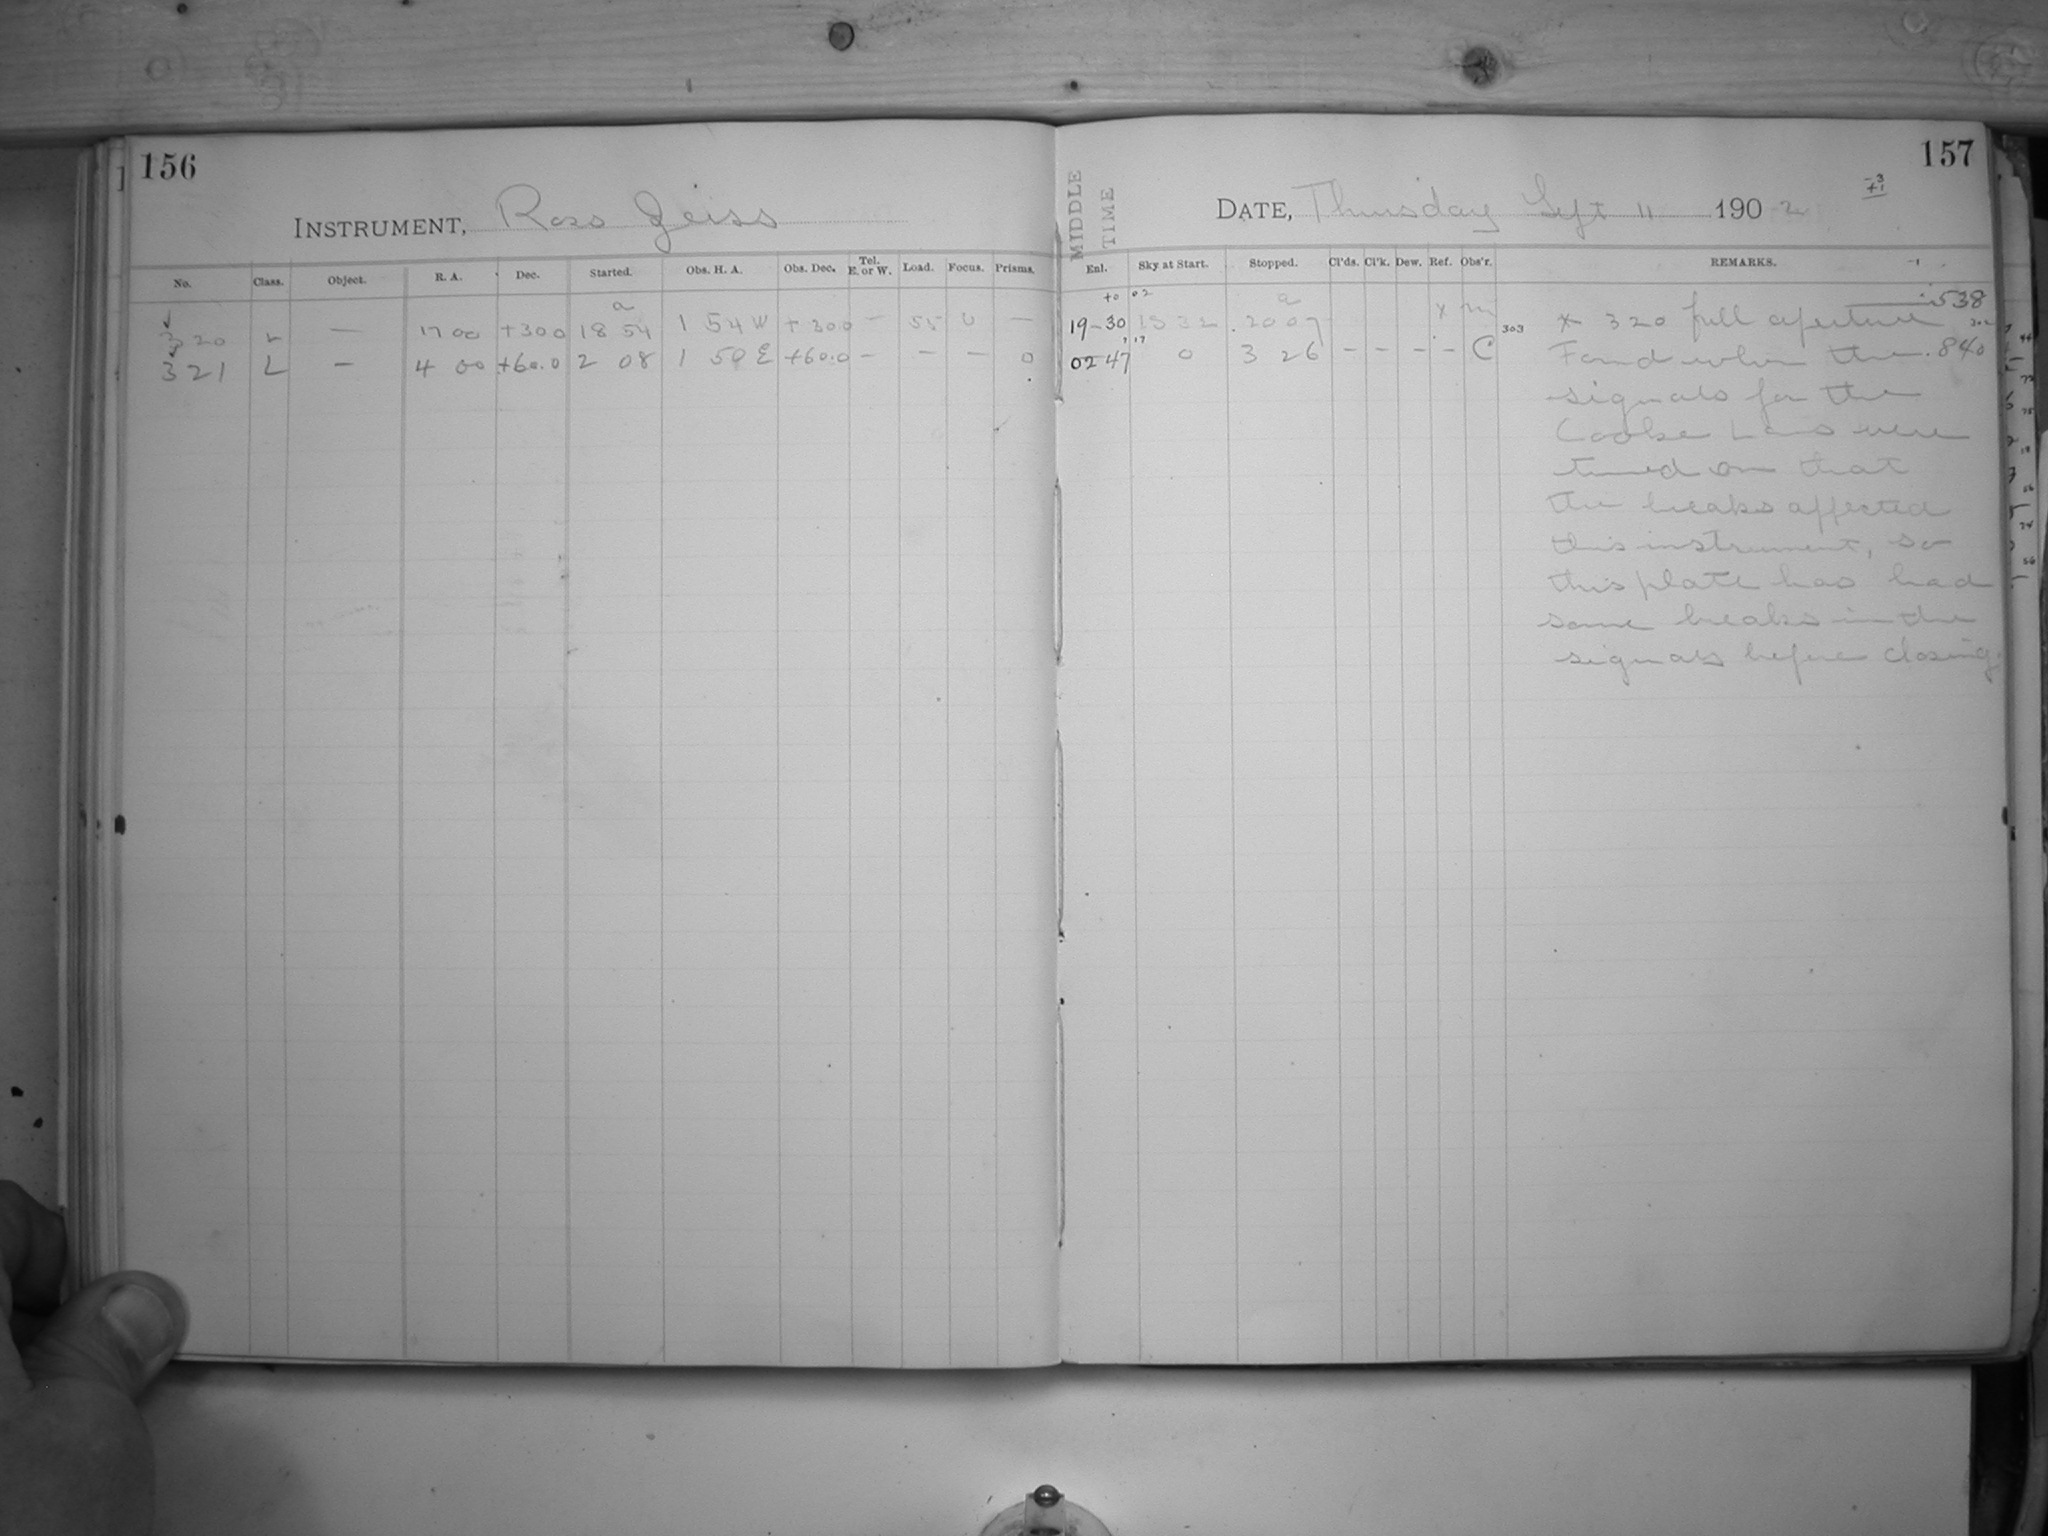 156
157
INSTRUMENT, Ross Zeiss
MIDDLE TIME
DATE, Thursday Sept 11 1902
-3
+1
No. Class. Object. R. A. Dec. Started. Obs. H. A. Obs. Dec. Tel. E. or W. Load. Focus. Prisms. Enl. Sky at Start. Stopped. Cl'ds. Cl'k. Dew. Ref. Obs'r. REMARKS. -1
320 L — 17 00 +30 0 18 54 1 54 W + 30 0 — 55 U — 19-30 18 32 20 07 x m x 320 full aperture .538
321 L — 4 00 +60.0 2 08 1 50 E +60.0 — — — 0 02 47 0 3 26 - - - - C 303 Found when the .840
signals for the
Cooke Lens were
turned on that
the breaks affected
this instrument, so
this plate has had
some breaks in the
signals before closing.